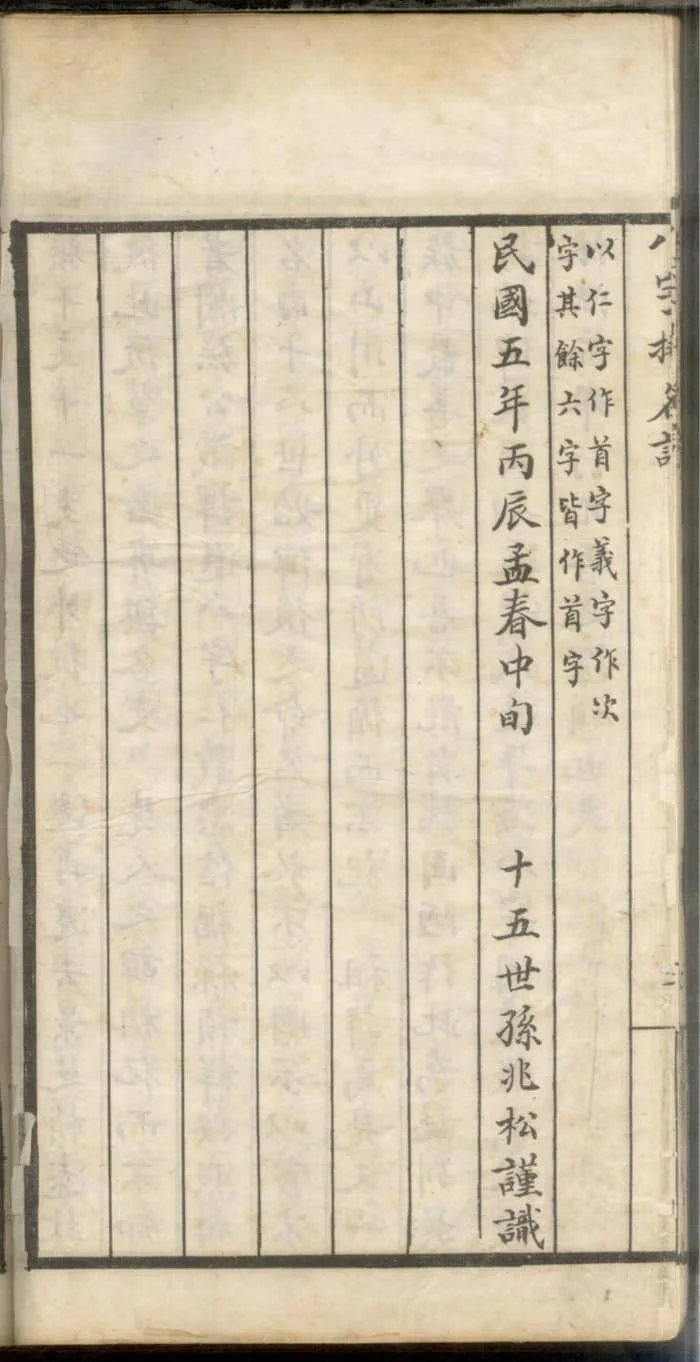 八字排名說
以仁字作首字義字作次
字其餘六字皆作首字
民國五年丙辰孟春中旬　十五世孫兆松謹識